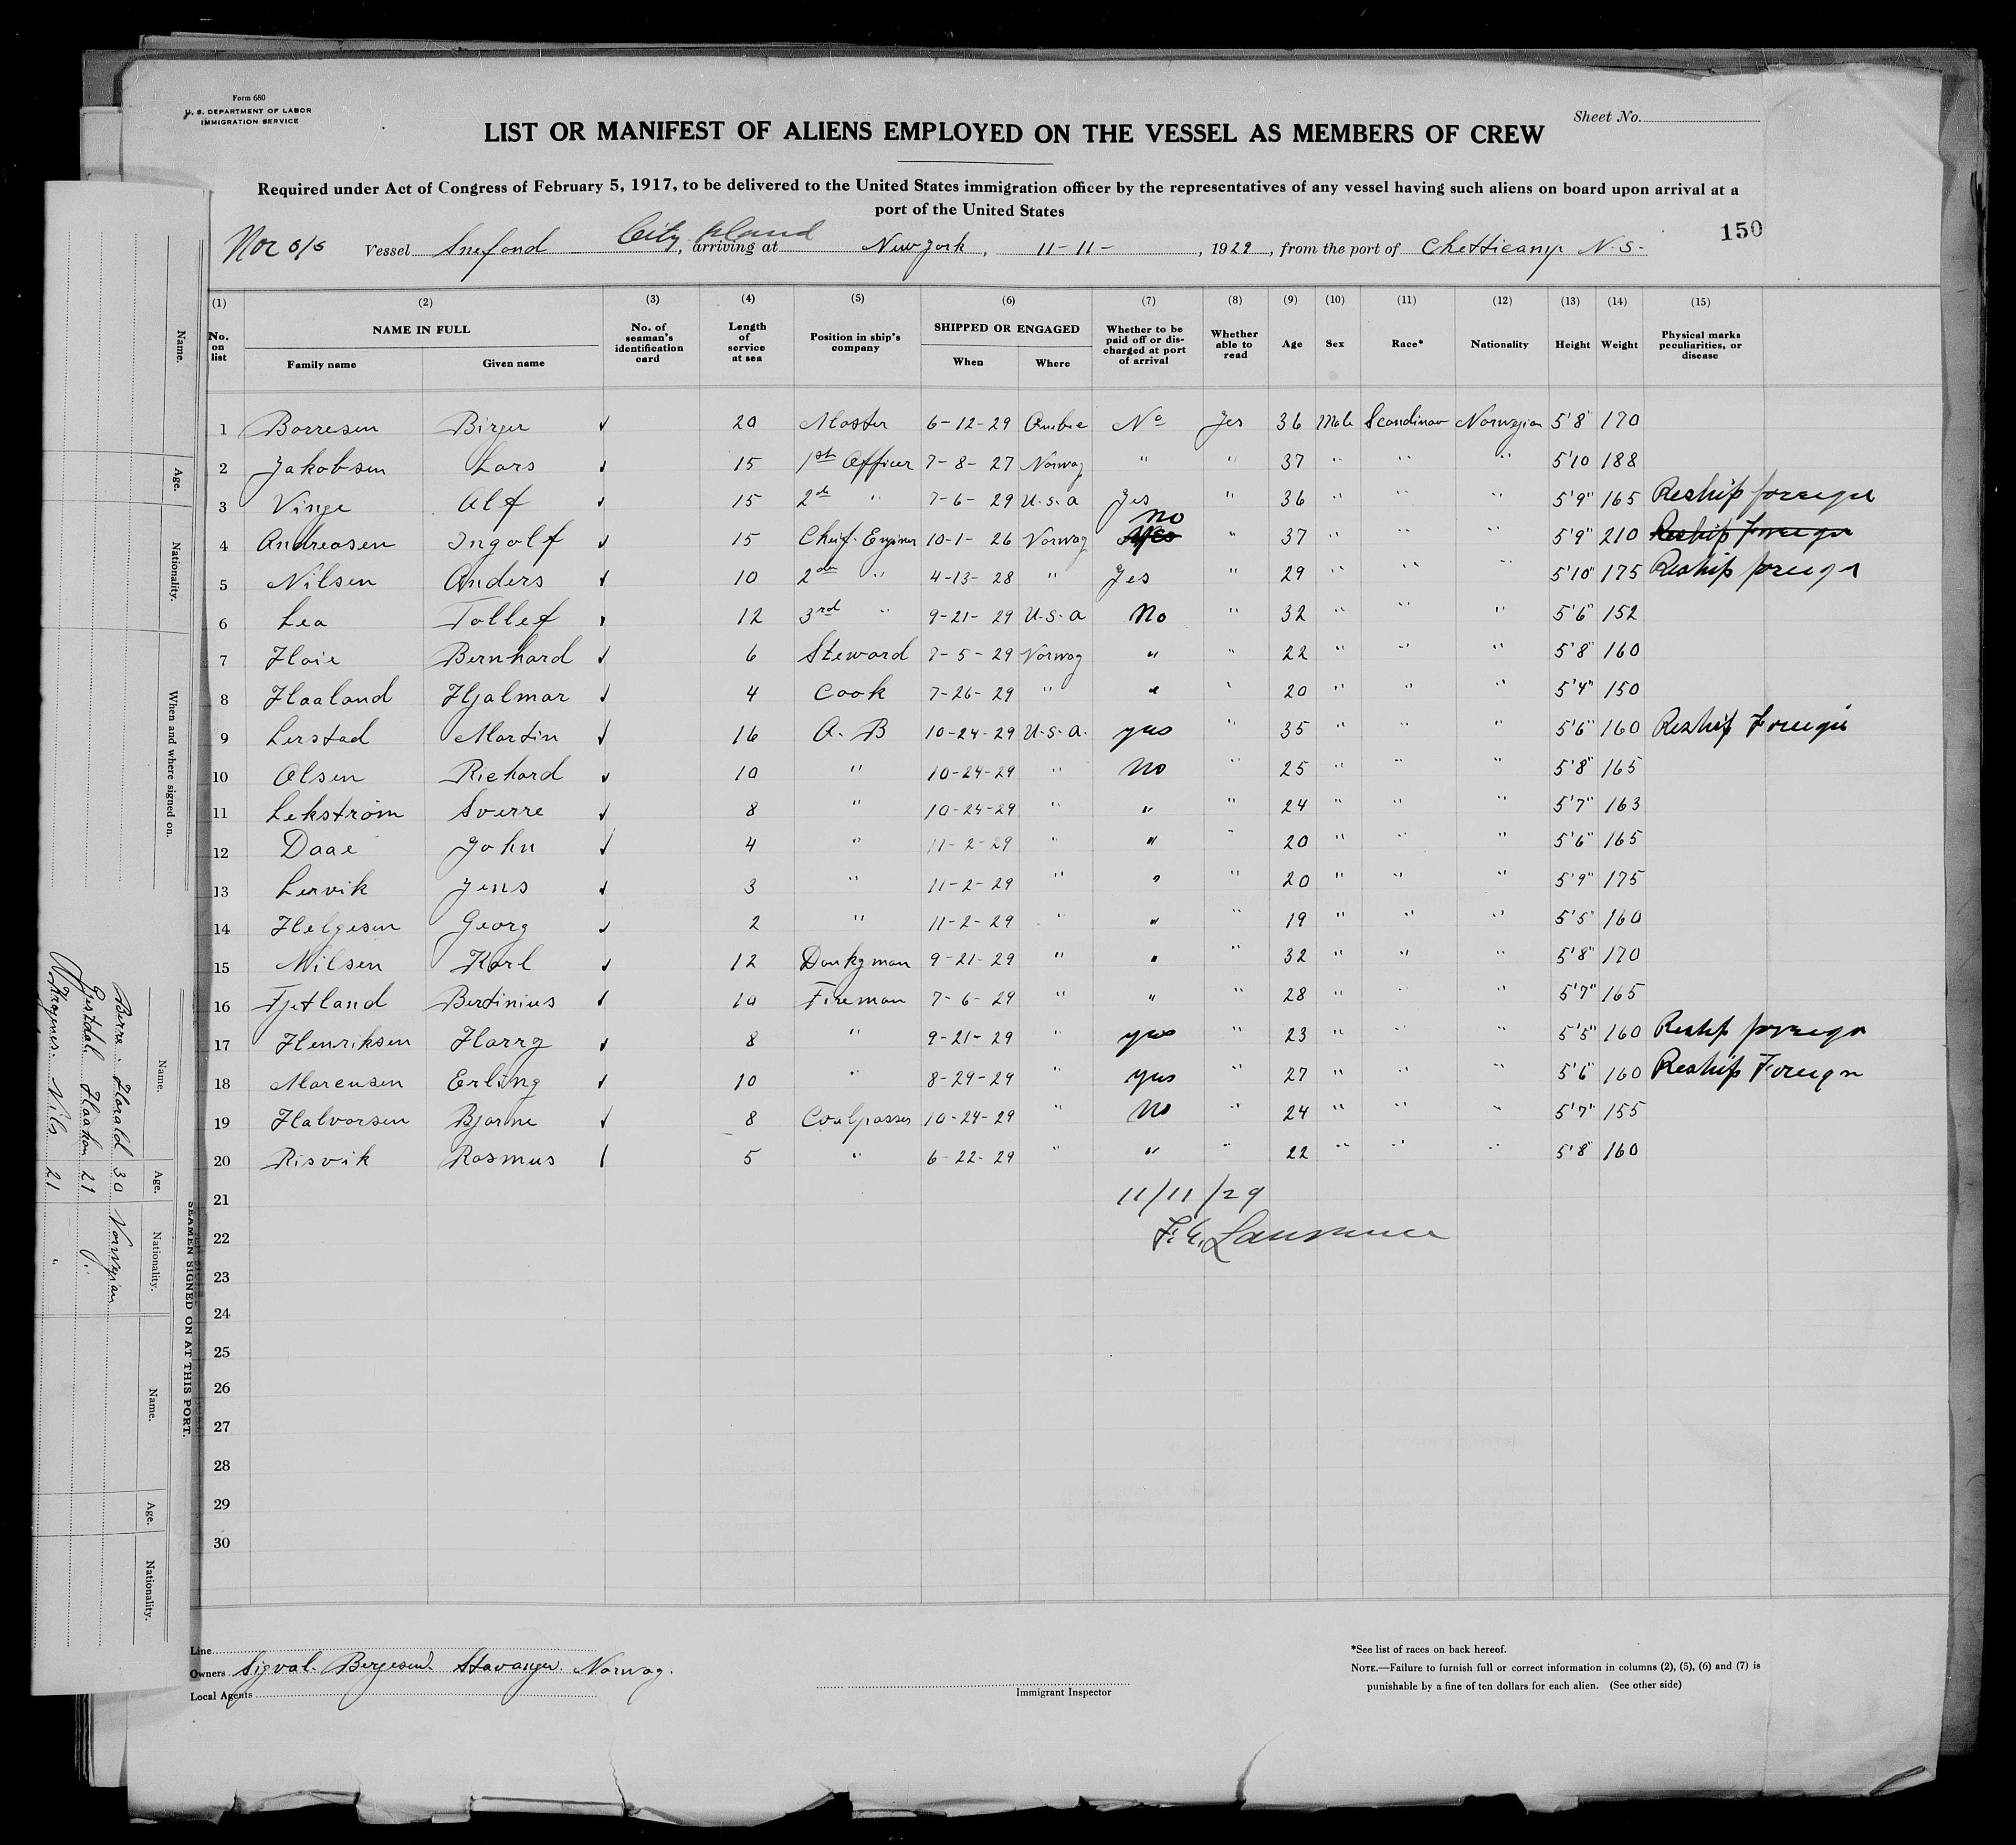 Form 680
U. S. DEPARTMENT OF LABOR
IMMIGRATION SERVICE
Sheet No.
LIST OR MANIFEST OF ALIENS EMPLOYED ON THE VESSEL AS MEMBERS OF CREW
Required under Act of Congress of February 5, 1917, to be delivered to the United States immigration officer by the representatives of any vessel having such aliens on board upon arrival at a
port of the United States
150
Nor s/s Vessel Snefond City Island, arriving at New York, 11-11-, 1929, from the port of Chetticamp N.S.
(1) (2) (3) (4) (5) (6) (7) (8) (9) (10) (11) (12) (13) (14) (15)
No. on list NAME IN FULL Family name Given name No. of seaman's identification card Length of service at sea Position in ship's company SHIPPED OR ENGAGED When Where Whether to be paid off or discharged at port of arrival Whether able to read Age Sex Race* Nationality Height Weight Physical marks peculiarities, or disease
1 Borresen Birger ✓ 20 Master 6-12-29 Quebec No Yes 36 Male Scandinav Norwegian 5'8" 170
2 Jakobsen Lars ✓ 15 1st Officer 7-8-27 Norway " " 37 " " " 5'10 188
3 Vinge Alf ✓ 15 2de " 7-6-29 U.S.A Yes " 36 " " " 5'9" 165 Reship foreign
4 Andreasen Ingolf ✓ 15 Cheif Enginer 10-1-26 Norway Yes no " 37 " " " 5'9" 210 Reship foreign
5 Nilsen Anders ✓ 10 2de " 4-13-28 " Yes " 29 " " " 5'10" 175 Reship foreign
6 Lea Tollef 12 3rd " 9-21-29 U.S.A No " 32 " " " 5'6" 152
7 Hoie Bernhard ✓ 6 Steward 7-5-29 Norway " " 22 " " " 5'8" 160
8 Haaland Hjalmar ✓ 4 Cook 7-26-29 " " " 20 " " " 5'4" 150
9 Lerstad Martin ✓ 16 A. B 10-24-29 U.S.A. yes " 35 " " " 5'6" 160 Reship Foreign
10 Olsen Richard ✓ 10 " 10-24-29 " No " 25 " " " 5'8" 165
11 Lekstrøm Sverre ✓ 8 " 10-24-29 " " " 24 " " " 5'7" 163
12 Daae John ✓ 4 " 11-2-29 " " " 20 " " " 5'6" 165
13 Lervik Jens ✓ 3 " 11-2-29 " " " 20 " " " 5'9" 175
14 Helgesen Georg ✓ 2 " 11-2-29 " " " 19 " " " 5'5" 160
15 Nilsen Karl ✓ 12 Donkyman 9-21-29 " " " 32 " " " 5'8" 170
16 Tjetland Bertinius ✓ 10 Fireman 7-6-29 " " " 28 " " " 5'7" 165
17 Henriksen Harry ✓ 8 " 9-21-29 " yes " 23 " " " 5'5" 160 Reship foreign
18 Marensen Erling ✓ 10 " 8-29-29 " yes " 27 " " " 5'6" 160 Reship Foreign
19 Halvorsen Bjarne ✓ 8 Coalpasser 10-24-29 " No " 24 " " " 5'7" 155
20 Risvik Rasmus 5 " 6-22-29 " " " 22 " " " 5'8" 160
21 11/11/29
22 Lawrence
23
24
25
26
27
28
29
30
Line
Owners Sigval. Bergesen. Stavanger. Norway.
Local Agents
Immigrant Inspector
*See list of races on back hereof.
NOTE.—Failure to furnish full or correct information in columns (2), (5), (6) and (7) is
punishable by a fine of ten dollars for each alien. (See other side)
Name. Age. Nationality. When and where signed on.
SEAMEN SIGNED ON AT THIS PORT.
Name. Age. Nationality. Name. Age. Nationality.
Berra. Harald 30 Norwegian
Gjestdal Haakon 21 "
Nils 21 "